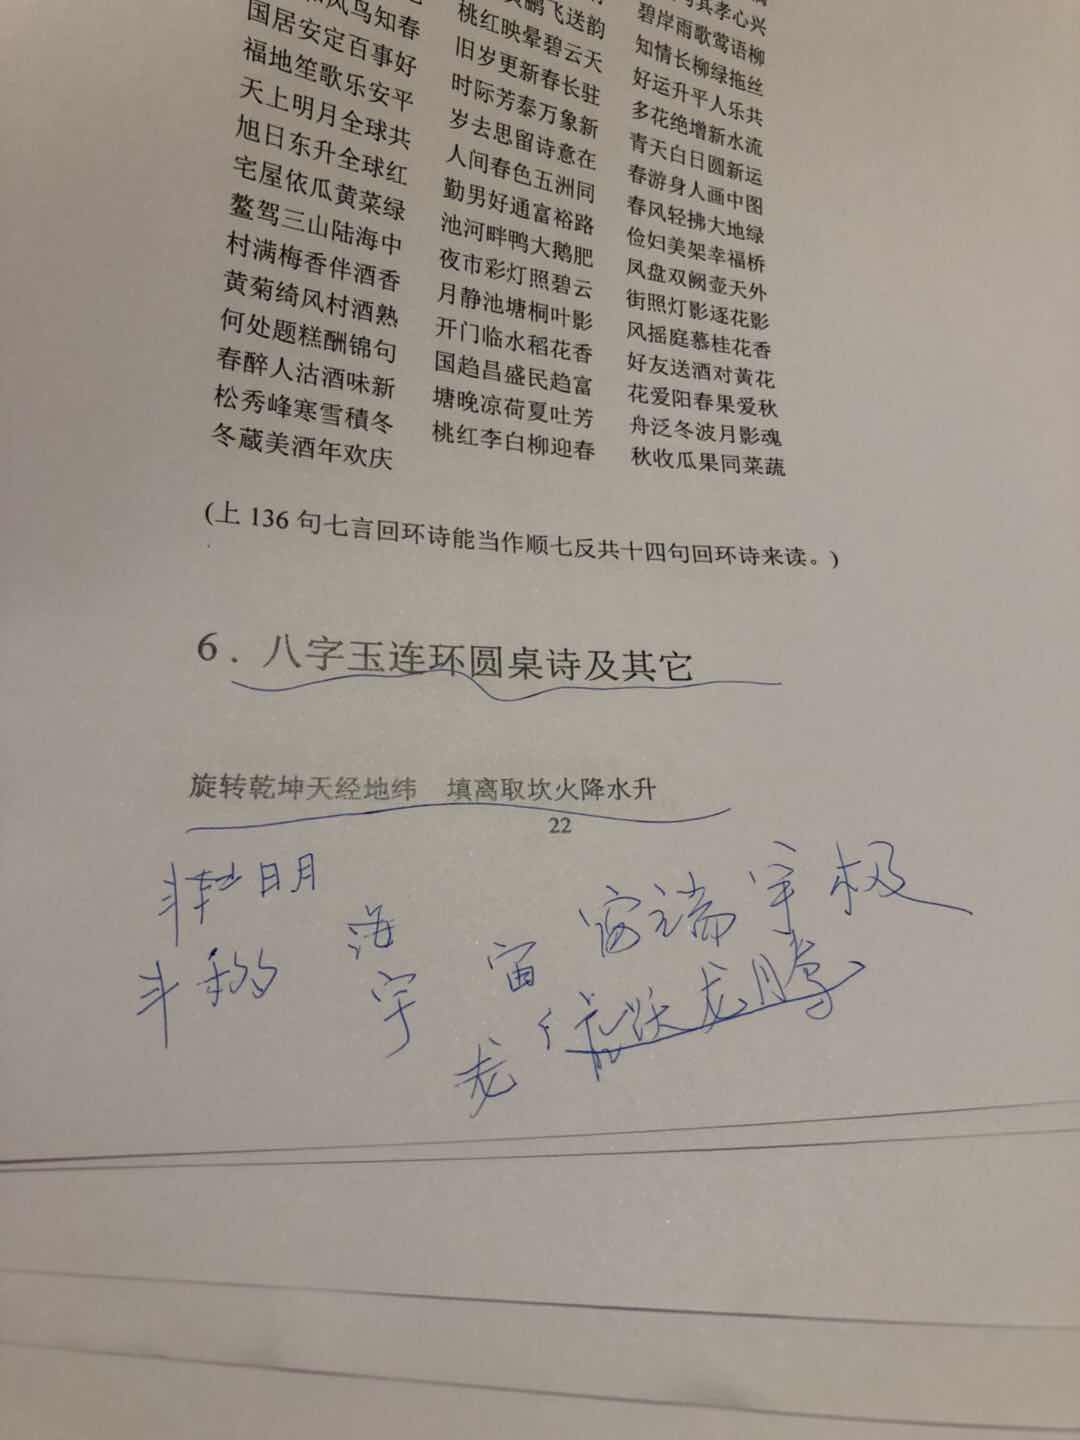 风鸟知春
国居安定百事好
福地笙歌乐安平
天上明月全球共
旭日东升全球红
宅屋依瓜黄菜绿
鳌驾三山陆海中
村满梅香伴酒香
黄菊绮风村酒熟
何处题糕酬锦句
春醉人沽酒味新
松秀峰寒雪積冬
冬蔵美酒年欢庆
鹏飞送韵
桃红映晕碧云天
旧岁更新春长驻
时际芳泰万象新
岁去思留诗意在
人间春色五洲同
勤男好通富裕路
池河畔鸭大鹅肥
夜市彩灯照碧云
月静池塘桐叶影
开门临水稻花香
国趋昌盛民趋富
塘晚凉荷夏吐芳
桃红李白柳迎春
其孝心兴
碧岸雨歌莺语柳
知情长柳绿拖丝
好运升平人乐共
多花绝增新水流
青天白日圆新运
春游身人画中图
春风轻拂大地绿
俭妇美架幸福桥
凤盘双阙壶天外
街照灯影逐花影
风摇庭慕桂花香
好友送酒对黄花
花爱阳春果爱秋
舟泛冬波月影魂
秋收瓜果同菜蔬
(上 136 句七言回环诗能当作顺七反共十四句回环诗来读。)
6．八字玉连环圆桌诗及其它
旋转乾坤天经地纬 填离取坎火降水升
22
斗转 日月
海 宙 端宇极
斗移
宇
龙 虎跃龙腾